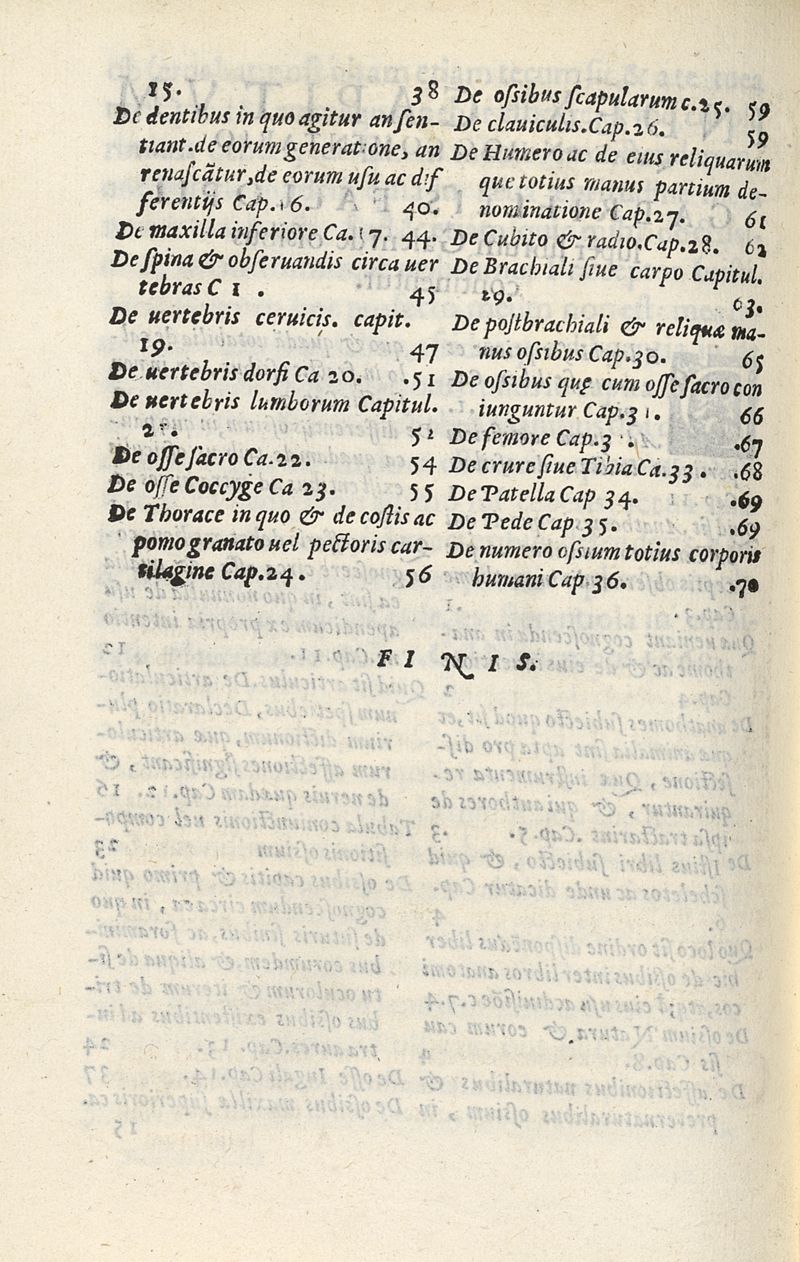 15. 38
De dentibus in quo agitur an ſen-
tiant.de eorum generatione, an
renaſcãtur,de eorum uſu ac dif
ferentijs Cap. 6. 40.
De maxilla inferiore Ca. 7. 44.
De ſpina & obſeruandis circa uer
tebras C 1 . 45
De uertebris ceruicis. capit.
19. 47
De uertebris dorſi Ca 20. .51
De uertebris lumborum Capitul.
2 . 52
De oſſe ſacro Ca.22. 54
De oſſe Coccyge Ca 23. 55
De Thorace in quo & de coſtis ac
pomo granato uel pectoris car-
tilagine Cap.24. 56
De oſsibus ſcapularum c.25. 59
De clauiculis.Cap.26. 59
De Humero ac de eius reliquarum
que totius manus partium de-
nominatione Cap.27. 61
De Cubito & radio.Cap.28. 62
De Brachiali ſiue carpo Capitul.
29. 63.
De poſtbrachiali & reliquæ ma-
nus oſsibus Cap.30. 65
De oſsibus quę cum oſſe ſacro con
iunguntur Cap.31. 66
De femore Cap.3 . .67
De crure ſiue Tibia Ca.33. .68
De Patella Cap 34. .69
De Pede Cap 35. .69
De numero oſsium totius corporis
humani Cap 36. .70
FINIS.